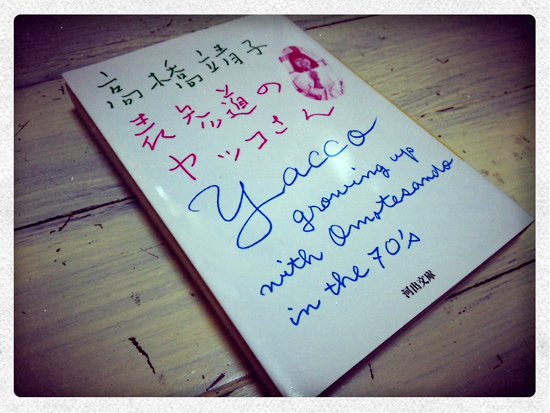 高橋靖子
表参道の
ヤッコさん
Yacco
growing up
with Omotesando
in the 70's
河出文庫